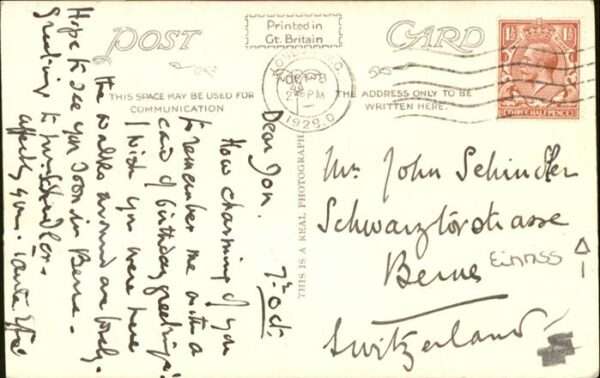 POST CARD
Printed in
Gt. Britain
THIS SPACE MAY BE USED FOR
COMMUNICATION
THE ADDRESS ONLY TO BE
WRITTEN HERE.
THIS IS A REAL PHOTOGRAPH
OCT
PM
1929
1½ 1½
THREE HALF PENCE
7th Oct.
Dear Jon.
How charming of you
to remember me with a
card of birthday greetings!
I wish you were here
the walks around are lovely.
Hope to see you soon in Berne.
Greetings to
yours.
Mr. John Schindler
Schwarztorstrasse
Berne
Switzerland